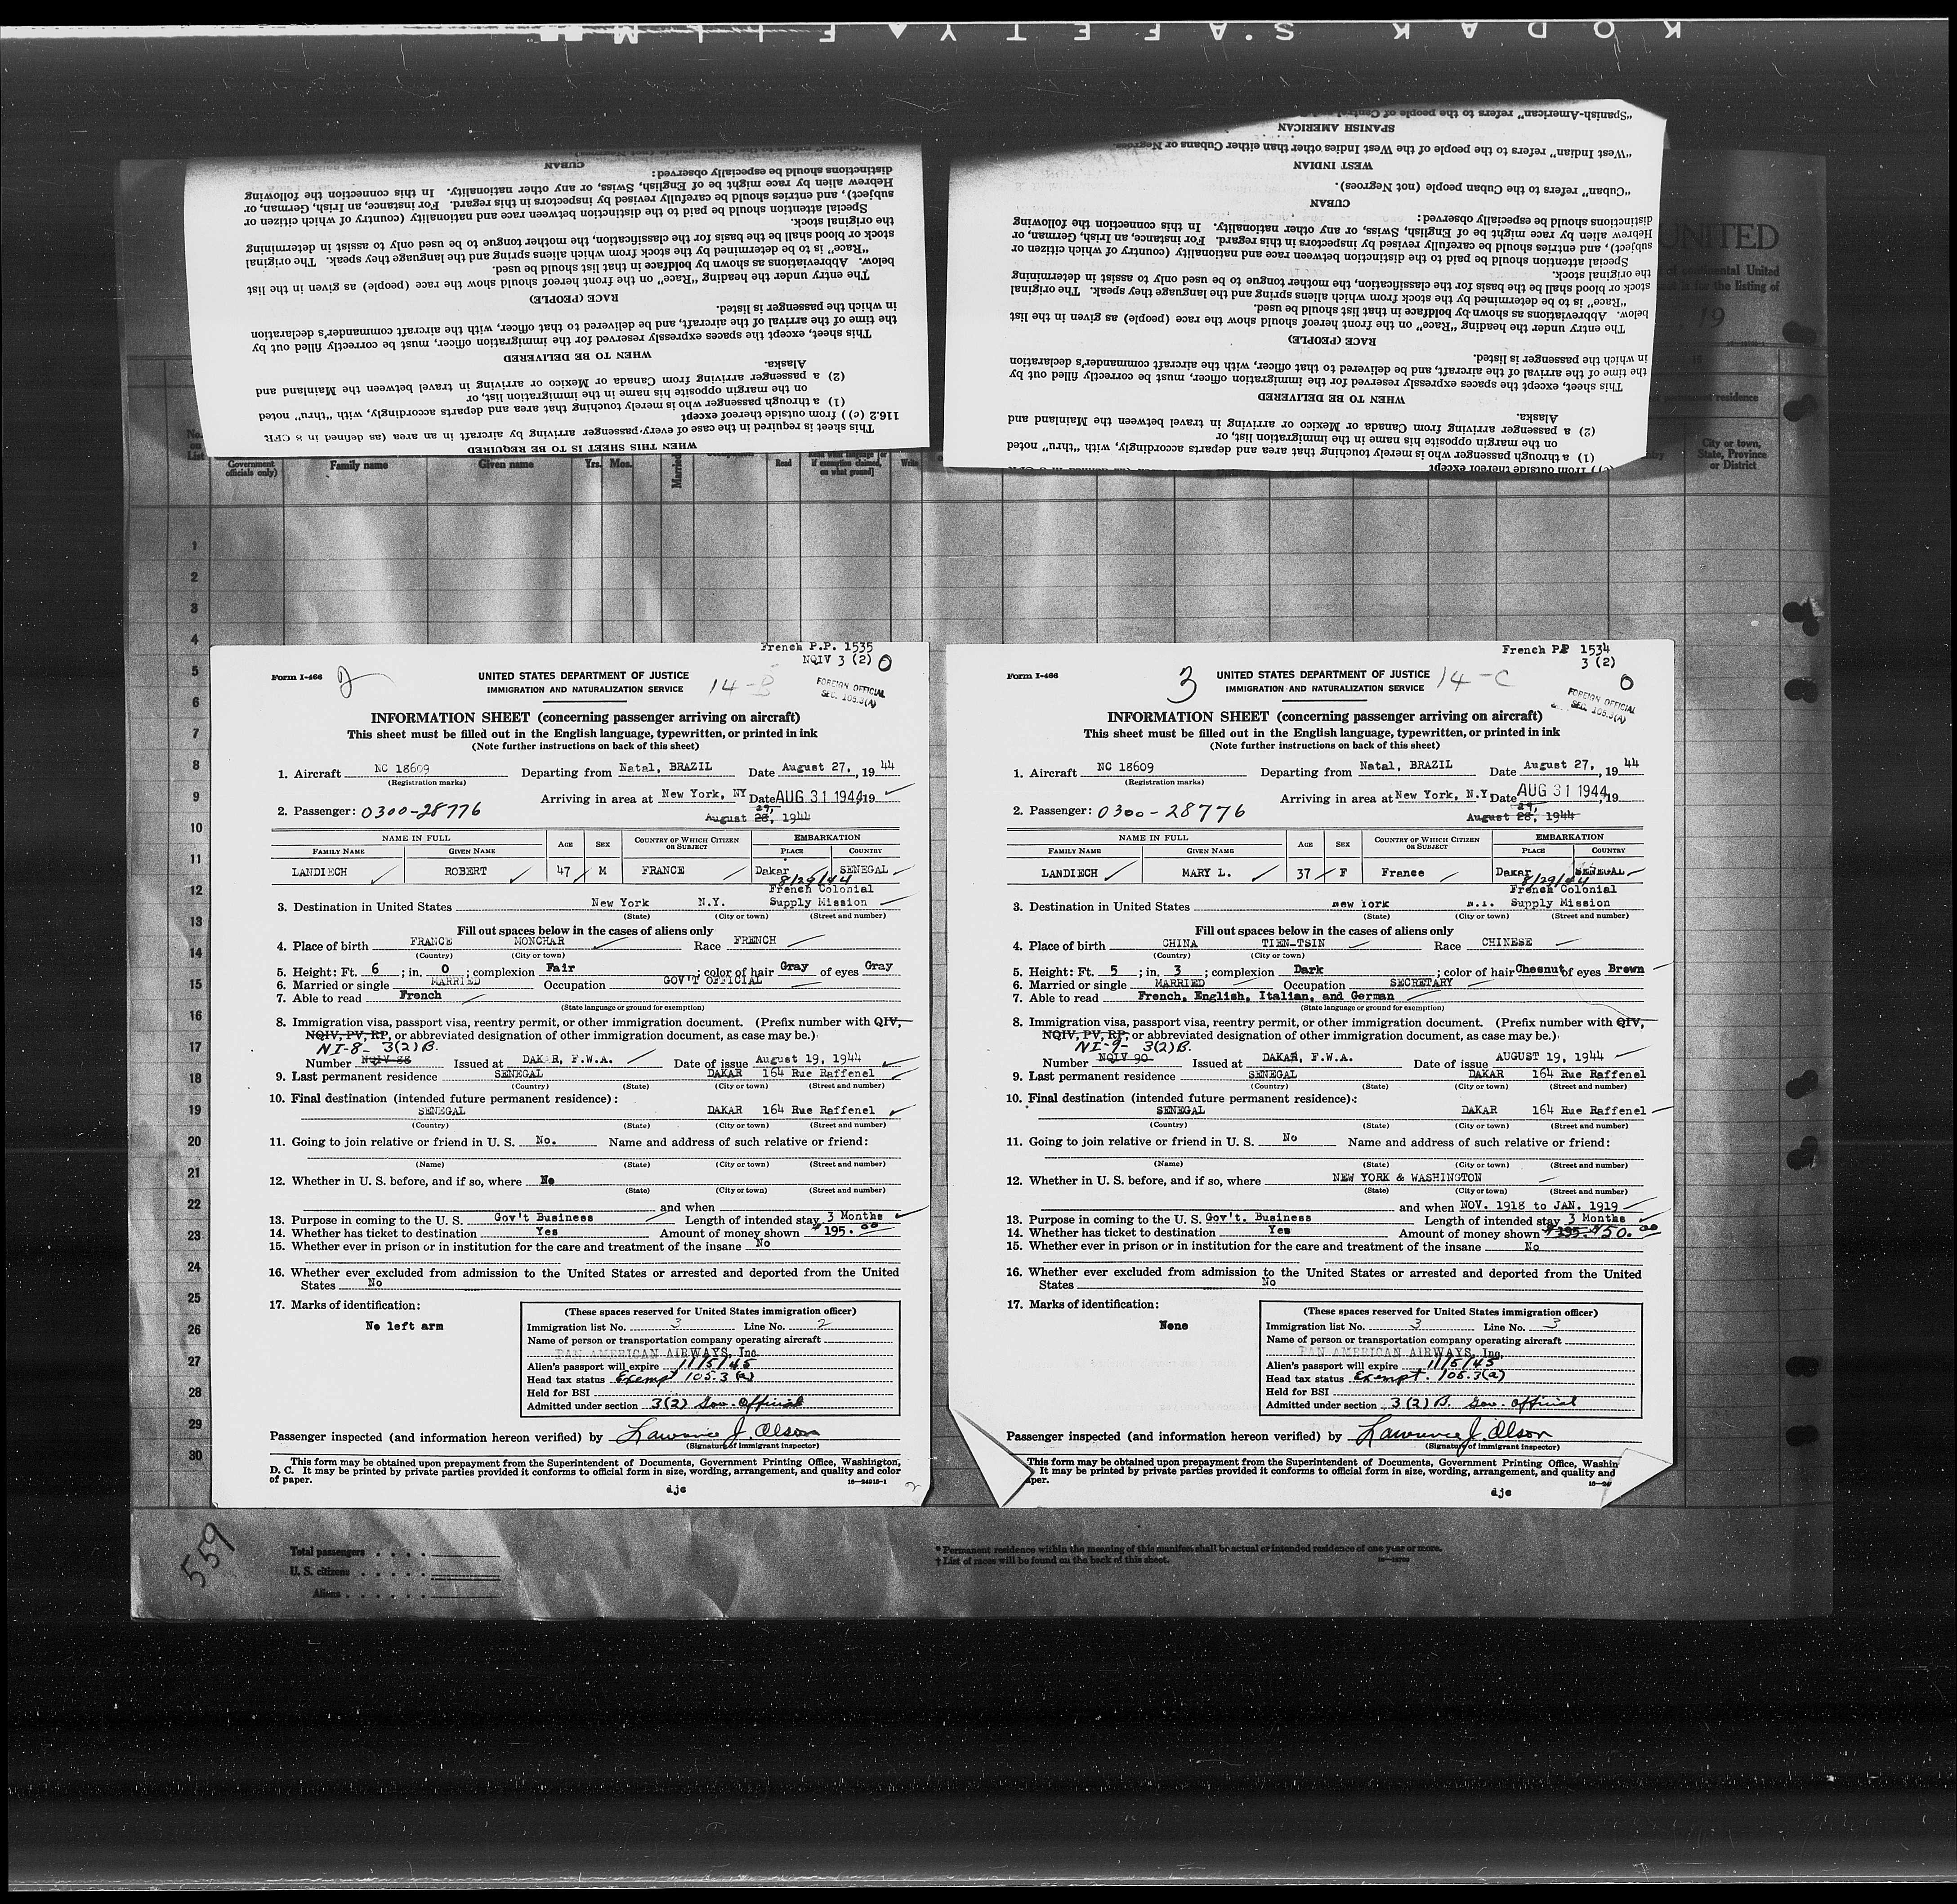 KODAK SAFETY FILM
"Spanish-American" refers to the people of Central
SPANISH AMERICAN
"West Indian" refers to the people of the West Indies other than either Cubans or Negroes.
WEST INDIAN
"Cuban" refers to the Cuban people (not Negroes).
CUBAN
distinctions should be especially observed:
Hebrew alien by race might be of English, Swiss, or any other nationality. In this connection the following
subject), and entries should be carefully revised by inspectors in this regard. For instance, an Irish, German, or
Special attention should be paid to the distinction between race and nationality (country of which citizen or
the original stock.
stock or blood shall be the basis for the classification, the mother tongue to be used only to assist in determining
"Race" is to be determined by the stock from which aliens spring and the language they speak. The original
below. Abbreviations as shown by boldface in that list should be used.
The entry under the heading "Race" on the front hereof should show the race (people) as given in the list
RACE (PEOPLE)
in which the passenger is listed.
the time of the arrival of the aircraft, and be delivered to that officer, with the aircraft commander's declaration
This sheet, except the spaces expressly reserved for the immigration officer, must be correctly filled out by
WHEN TO BE DELIVERED
Alaska.
(2) a passenger arriving from Canada or Mexico or arriving in travel between the Mainland and
on the margin opposite his name in the immigration list, or
(1) a through passenger who is merely touching that area and departs accordingly, with "thru" noted
(c)) from outside thereof except
"Cuban" refers to the Cuban people (not Negroes).
CUBAN
distinctions should be especially observed:
Hebrew alien by race might be of English, Swiss, or any other nationality. In this connection the following
subject), and entries should be carefully revised by inspectors in this regard. For instance, an Irish, German, or
Special attention should be paid to the distinction between race and nationality (country of which citizen or
the original stock.
stock or blood shall be the basis for the classification, the mother tongue to be used only to assist in determining
"Race" is to be determined by the stock from which aliens spring and the language they speak. The original
below. Abbreviations as shown by boldface in that list should be used.
The entry under the heading "Race" on the front hereof should show the race (people) as given in the list
RACE (PEOPLE)
in which the passenger is listed.
the time of the arrival of the aircraft, and be delivered to that officer, with the aircraft commander's declaration
This sheet, except the spaces expressly reserved for the immigration officer, must be correctly filled out by
WHEN TO BE DELIVERED
Alaska.
(2) a passenger arriving from Canada or Mexico or arriving in travel between the Mainland and
on the margin opposite his name in the immigration list, or
(1) a through passenger who is merely touching that area and departs accordingly, with "thru" noted
116.2 (c)) from outside thereof except
This sheet is required in the case of every passenger arriving by aircraft in an area (as defined in 8 CFR
WHEN THIS SHEET IS TO BE REQUIRED
UNITED
of continental United
is for the listing of
19
permanent residence
City or town, State, Province or District
No. on List
Government officials only)
Family name
Given name
Yrs. Mos.
Married
Read
Read what language [or if exemption claimed, on what ground]
Write
1
2
3
4
5
6
7
8
9
10
11
12
13
14
15
16
17
18
19
20
21
22
23
24
25
26
27
28
29
30
French P.P. 1535
NQIV 3 (2) 0
Form I-466 2
UNITED STATES DEPARTMENT OF JUSTICE
IMMIGRATION AND NATURALIZATION SERVICE
14-B
FOREIGN OFFICIAL
SEC. 105.3(A)
INFORMATION SHEET (concerning passenger arriving on aircraft)
This sheet must be filled out in the English language, typewritten, or printed in ink
(Note further instructions on back of this sheet)
1. Aircraft NC 18609 Departing from Natal, BRAZIL Date August 27, 1944
(Registration marks)
Arriving in area at New York, NY Date AUG 31 1944 19
2. Passenger: 0300-28776 August 28, 29, 1944
NAME IN FULL AGE SEX COUNTRY OF WHICH CITIZEN OR SUBJECT EMBARKATION
FAMILY NAME GIVEN NAME PLACE COUNTRY
LANDIECH ROBERT 47 M FRANCE Dakar SENEGAL
8/29/44
French Colonial
3. Destination in United States New York N.Y. Supply Mission
(State) (City or town) (Street and number)
Fill out spaces below in the cases of aliens only
4. Place of birth FRANCE MONCHAR Race FRENCH
(Country) (City or town)
5. Height: Ft. 6; in. 0; complexion Fair; color of hair Gray of eyes Gray
6. Married or single MARRIED Occupation GOV'T OFFICIAL
7. Able to read French
(State language or ground for exemption)
8. Immigration visa, passport visa, reentry permit, or other immigration document. (Prefix number with QIV,
NQIV, PV, RP, or abbreviated designation of other immigration document, as case may be.)
NI-8- 3(2)B.
Number NQIV 88 Issued at DAKAR, F.W.A. Date of issue August 19, 1944
9. Last permanent residence SENEGAL DAKAR 164 Rue Raffenel
(Country) (State) (City or town) (Street and number)
10. Final destination (intended future permanent residence):
SENEGAL DAKAR 164 Rue Raffenel
(Country) (State) (City or town) (Street and number)
11. Going to join relative or friend in U. S. No. Name and address of such relative or friend:
(Name) (State) (City or town) (Street and number)
12. Whether in U. S. before, and if so, where No
(State) (City or town) (Street and number)
and when
13. Purpose in coming to the U. S. Gov't Business Length of intended stay 3 Months
14. Whether has ticket to destination Yes Amount of money shown $195.00
15. Whether ever in prison or in institution for the care and treatment of the insane No
16. Whether ever excluded from admission to the United States or arrested and deported from the United
States No
17. Marks of identification:
No left arm
(These spaces reserved for United States immigration officer)
Immigration list No. 3 Line No. 2
Name of person or transportation company operating aircraft
PAN AMERICAN AIRWAYS, Inc.
Alien's passport will expire 11/5/45
Head tax status Exempt 105.3(a)
Held for BSI
Admitted under section 3(2) Gov. Official
Passenger inspected (and information hereon verified) by Lawrence J. Olson
(Signature of immigrant inspector)
This form may be obtained upon prepayment from the Superintendent of Documents, Government Printing Office, Washington,
D. C. It may be printed by private parties provided it conforms to official form in size, wording, arrangement, and quality and color
of paper. 16-24915-1
djc
2
French PP 1534
3 (2)
0
Form I-466
3
UNITED STATES DEPARTMENT OF JUSTICE
IMMIGRATION AND NATURALIZATION SERVICE
14-C
FOREIGN OFFICIAL
SEC. 105.3(A)
INFORMATION SHEET (concerning passenger arriving on aircraft)
This sheet must be filled out in the English language, typewritten, or printed in ink
(Note further instructions on back of this sheet)
1. Aircraft NC 18609 Departing from Natal, BRAZIL Date August 27, 1944
(Registration marks)
Arriving in area at New York, N.Y Date AUG 31 1944, 19
2. Passenger: 0300-28776 August 28, 29, 1944
NAME IN FULL AGE SEX COUNTRY OF WHICH CITIZEN OR SUBJECT EMBARKATION
FAMILY NAME GIVEN NAME PLACE COUNTRY
LANDIECH MARY L. 37 F France Dakar SENEGAL
8/29/44
French Colonial
3. Destination in United States New York N.Y. Supply Mission
(State) (City or town) (Street and number)
Fill out spaces below in the cases of aliens only
4. Place of birth CHINA TIEN-TSIN Race CHINESE
(Country) (City or town)
5. Height: Ft. 5; in. 3; complexion Dark; color of hair Chesnut of eyes Brown
6. Married or single MARRIED Occupation SECRETARY
7. Able to read French, English, Italian, and German
(State language or ground for exemption)
8. Immigration visa, passport visa, reentry permit, or other immigration document. (Prefix number with QIV,
NQIV, PV, RP, or abbreviated designation of other immigration document, as case may be.)
NI-9- 3(2)B.
Number NQIV 90 Issued at DAKAR, F.W.A. Date of issue AUGUST 19, 1944
9. Last permanent residence SENEGAL DAKAR 164 Rue Raffenel
(Country) (State) (City or town) (Street and number)
10. Final destination (intended future permanent residence):
SENEGAL DAKAR 164 Rue Raffenel
(Country) (State) (City or town) (Street and number)
11. Going to join relative or friend in U. S. No Name and address of such relative or friend:
(Name) (State) (City or town) (Street and number)
12. Whether in U. S. before, and if so, where NEW YORK & WASHINGTON
(State) (City or town) (Street and number)
and when NOV. 1918 to JAN. 1919
13. Purpose in coming to the U. S. Gov't. Business Length of intended stay 3 Months
14. Whether has ticket to destination Yes Amount of money shown $195. $50.00
15. Whether ever in prison or in institution for the care and treatment of the insane No
16. Whether ever excluded from admission to the United States or arrested and deported from the United
States No
17. Marks of identification:
None
(These spaces reserved for United States immigration officer)
Immigration list No. 3 Line No. 3
Name of person or transportation company operating aircraft
PAN AMERICAN AIRWAYS, Inc.
Alien's passport will expire 11/5/45
Head tax status Exempt. 105.3(a)
Held for BSI
Admitted under section 3(2) B. Gov. Official
Passenger inspected (and information hereon verified) by Lawrence J. Olson
(Signature of immigrant inspector)
This form may be obtained upon prepayment from the Superintendent of Documents, Government Printing Office, Washin
It may be printed by private parties provided it conforms to official form in size, wording, arrangement, and quality and
aper.
djc
559
Total passengers
U. S. citizens
Aliens
* Permanent residence within the meaning of this manifest shall be actual or intended residence of one year or more.
† List of races will be found on the back of this sheet.